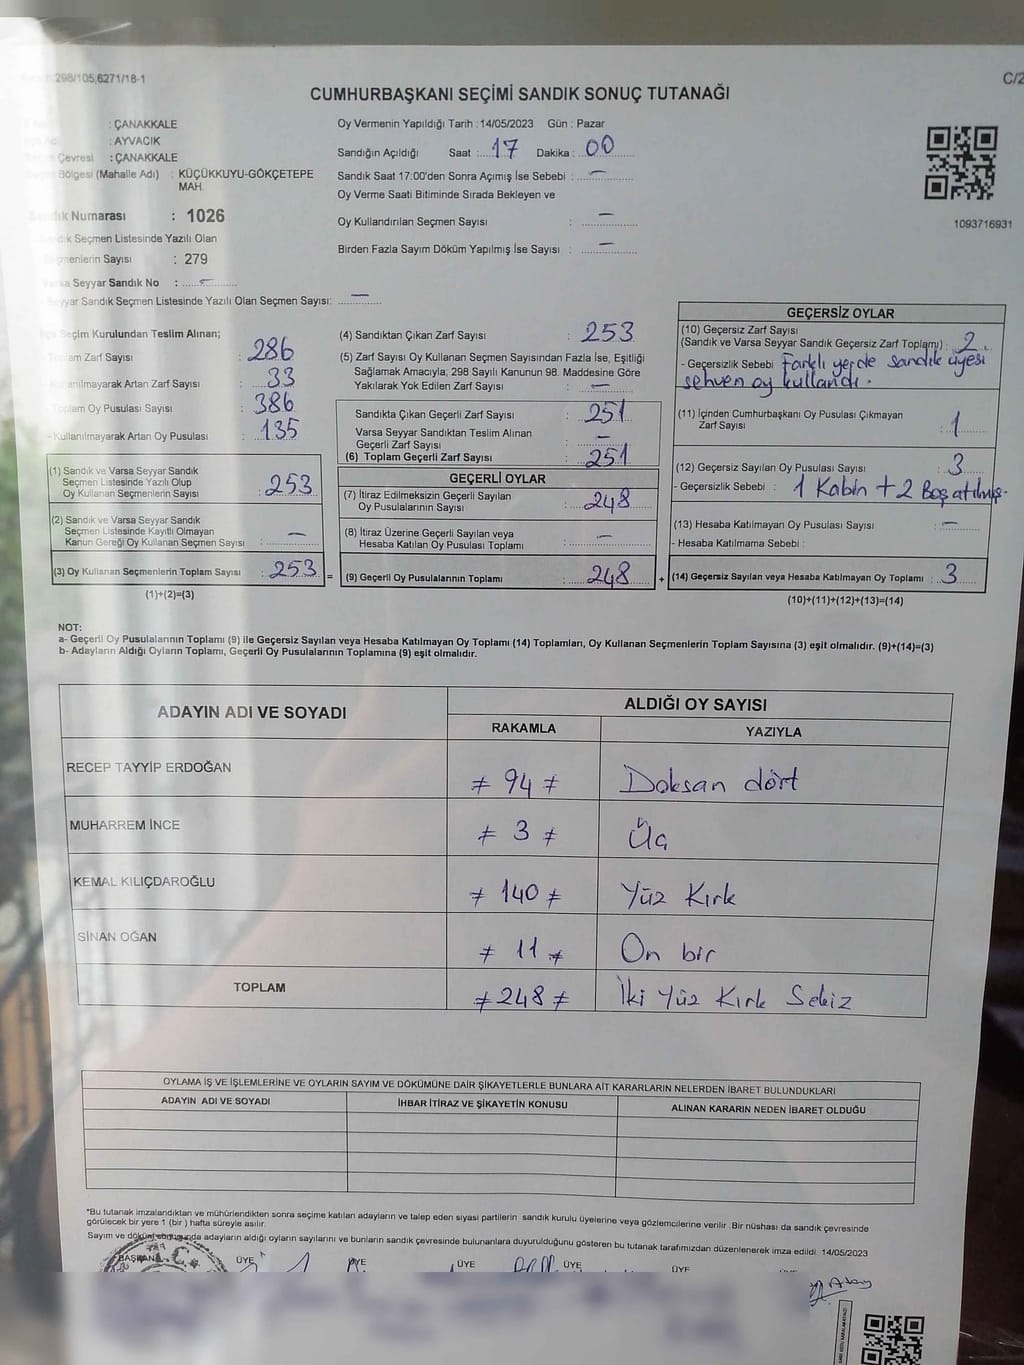 298/105,6271/18-1
C/2
CUMHURBAŞKANI SEÇİMİ SANDIK SONUÇ TUTANAĞI
: ÇANAKKALE
: AYVACIK
Çevresi : ÇANAKKALE
Bölgesi (Mahalle Adı) : KÜÇÜKKUYU-GÖKÇETEPE
MAH.
Sandık Numarası : 1026
Sandık Seçmen Listesinde Yazılı Olan
Seçmenlerin Sayısı : 279
Varsa Seyyar Sandık No : –
Seyyar Sandık Seçmen Listesinde Yazılı Olan Seçmen Sayısı: –
Oy Vermenin Yapıldığı Tarih : 14/05/2023 Gün : Pazar
Sandığın Açıldığı Saat : 17 Dakika : 00
Sandık Saat 17:00'den Sonra Açımış İse Sebebi : –
Oy Verme Saati Bitiminde Sırada Bekleyen ve
Oy Kullandırılan Seçmen Sayısı : –
Birden Fazla Sayım Döküm Yapılmış İse Sayısı : –
1093716931
İlçe Seçim Kurulundan Teslim Alınan;
- Toplam Zarf Sayısı : 286
- Kullanılmayarak Artan Zarf Sayısı : 33
- Toplam Oy Pusulası Sayısı : 386
- Kullanılmayarak Artan Oy Pusulası : 135
(1) Sandık ve Varsa Seyyar Sandık
Seçmen Listesinde Yazılı Olup
Oy Kullanan Seçmenlerin Sayısı : 253
(2) Sandık ve Varsa Seyyar Sandık
Seçmen Listesinde Kayıtlı Olmayan
Kanun Gereği Oy Kullanan Seçmen Sayısı : –
(3) Oy Kullanan Seçmenlerin Toplam Sayısı : 253 =
(1)+(2)=(3)
(4) Sandıktan Çıkan Zarf Sayısı : 253
(5) Zarf Sayısı Oy Kullanan Seçmen Sayısından Fazla İse, Eşitliği
Sağlamak Amacıyla, 298 Sayılı Kanunun 98. Maddesine Göre
Yakılarak Yok Edilen Zarf Sayısı : –
Sandıkta Çıkan Geçerli Zarf Sayısı : 251
Varsa Seyyar Sandıktan Teslim Alınan
Geçerli Zarf Sayısı : –
(6) Toplam Geçerli Zarf Sayısı : 251
GEÇERLİ OYLAR
(7) İtiraz Edilmeksizin Geçerli Sayılan
Oy Pusulasının Sayısı : 248
(8) İtiraz Üzerine Geçerli Sayılan veya
Hesaba Katılan Oy Pusulası Toplamı : –
(9) Geçerli Oy Pusulalarının Toplamı : 248 +
GEÇERSİZ OYLAR
(10) Geçersiz Zarf Sayısı
(Sandık ve Varsa Seyyar Sandık Geçersiz Zarf Toplamı) : 2
- Geçersizlik Sebebi Farklı yerde sandık üyesi
sehven oy kullandı.
(11) İçinden Cumhurbaşkanı Oy Pusulası Çıkmayan
Zarf Sayısı : 1
(12) Geçersiz Sayılan Oy Pusulası Sayısı : 3
- Geçersizlik Sebebi : 1 Kabin + 2 Boş atılmış.
(13) Hesaba Katılmayan Oy Pusulası Sayısı : –
- Hesaba Katılmama Sebebi :
(14) Geçersiz Sayılan veya Hesaba Katılmayan Oy Toplamı : 3
(10)+(11)+(12)+(13)=(14)
NOT:
a- Geçerli Oy Pusulalarının Toplamı (9) ile Geçersiz Sayılan veya Hesaba Katılmayan Oy Toplamı (14) Toplamları, Oy Kullanan Seçmenlerin Toplam Sayısına (3) eşit olmalıdır. (9)+(14)=(3)
b- Adayların Aldığı Oyların Toplamı, Geçerli Oy Pusulalarının Toplamına (9) eşit olmalıdır.
ADAYIN ADI VE SOYADI
ALDIĞI OY SAYISI
RAKAMLA YAZIYLA
RECEP TAYYİP ERDOĞAN ≠ 94 ≠ Doksan dört
MUHARREM İNCE ≠ 3 ≠ Üç
KEMAL KILIÇDAROĞLU ≠ 140 ≠ Yüz Kırk
SİNAN OĞAN ≠ 11 ≠ On bir
TOPLAM ≠ 248 ≠ İki Yüz Kırk Sekiz
OYLAMA İŞ VE İŞLEMLERİNE VE OYLARIN SAYIM VE DÖKÜMÜNE DAİR ŞİKAYETLERLE BUNLARA AİT KARARLARIN NELERDEN İBARET BULUNDUKLARI
ADAYIN ADI VE SOYADI İHBAR İTİRAZ VE ŞİKAYETİN KONUSU ALINAN KARARIN NEDEN İBARET OLDUĞU
*Bu tutanak imzalandıktan ve mühürlendikten sonra seçime katılan adayların ve talep eden siyasi partilerin sandık kurulu üyelerine veya gözlemcilerine verilir. Bir nüshası da sandık çevresinde
görülecek bir yere 1 (bir) hafta süreyle asılır.
Sayım ve döküm sonucunda adayların aldığı oyların sayılarını ve bunların sandık çevresinde bulunanlara duyurulduğunu gösteren bu tutanak tarafımızdan düzenlenerek imza edildi. 14/05/2023
BAŞKAN ÜYE ÜYE ÜYE ÜYE ÜYE ÜYE
T.C.